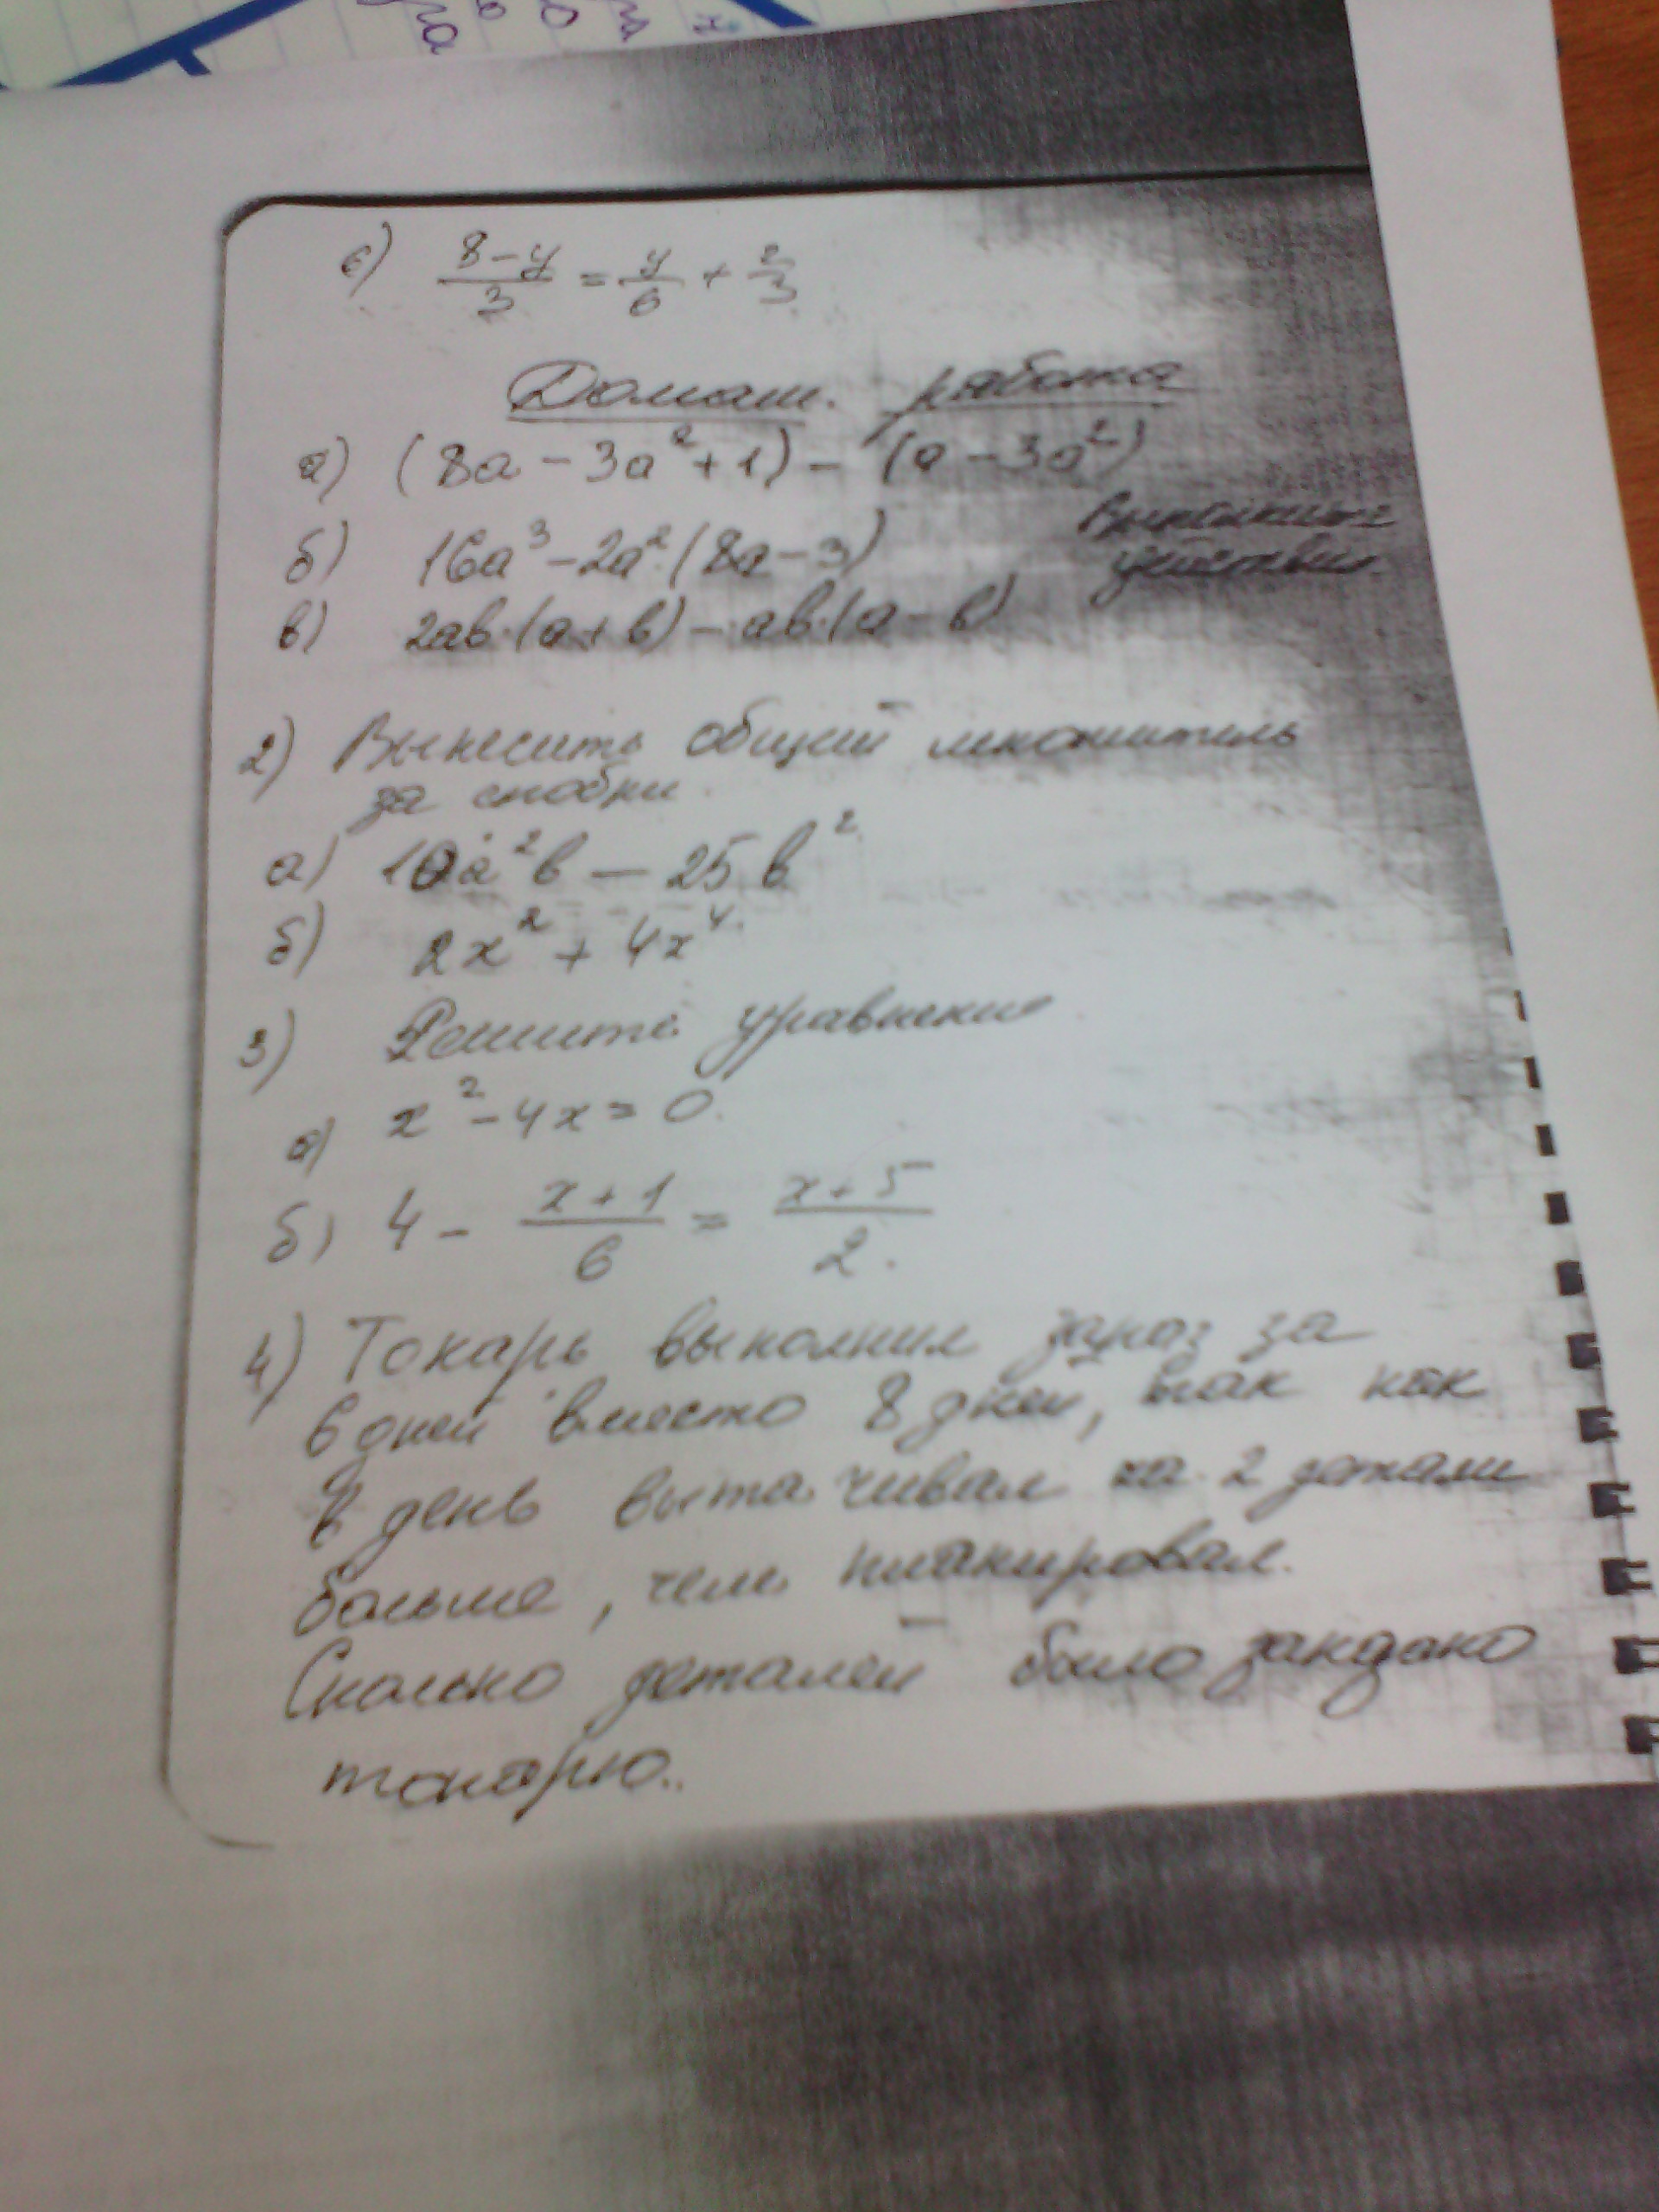 е) 8-у/3 = у/6 + 2/3
Домаш. работа
а) (8a - 3a² + 1) - (a - 3a²)
б) 16a³ - 2a²·(8a - 3)
Выполните
действия
в) 2ab·(a + b) - ab·(a - b)
2) Вынесить общий множитель
за скобки.
а) 10a²b - 25b²
б) 2x² + 4x⁴
3) Решите уравнение
а) x² - 4x = 0
б) 4 - x+1/6 = x+5/2.
4) Токарь выполнил заказ за
6 дней вместо 8 дней, так как
в день вытачивал на 2 детали
больше, чем планировал.
Сколько деталей было
токарю..